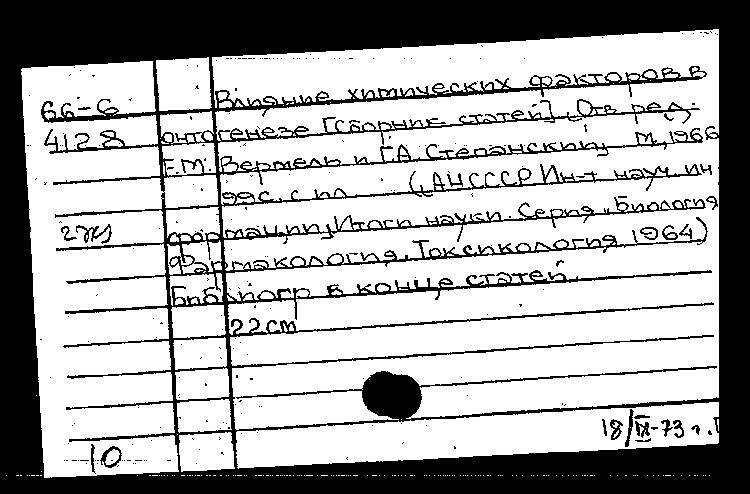 66-6 Влияние химических факторов в
4128 онтогенезе [Сборник статей] Отв ред.
Г.М. Вермель и Г.А. Степанский М, 1966
99с. с ил (АН СССР Ин-т науч. ин
формации, Итоги науки. Серия „Биология
Фармакология. Токсикология 1964)
Библиогр в конце статей.
22 cm
18/IX-73 г.
10